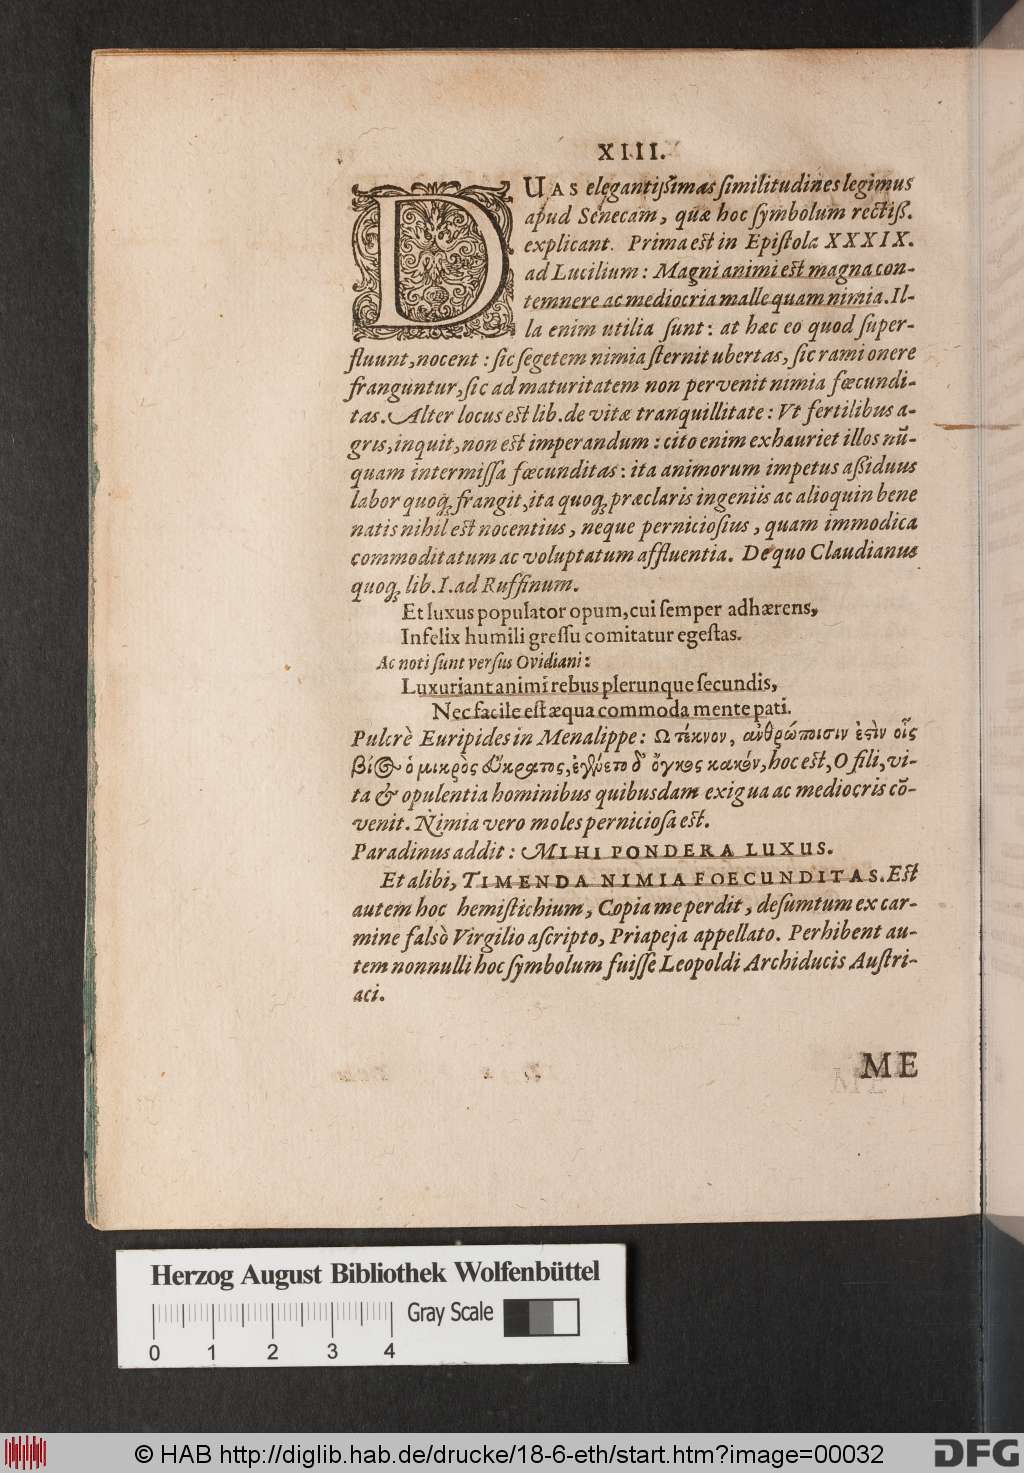 XIIII.
DUAS elegantiſſimas ſimilitudines legimus
apud Senecam, quæ hoc ſymbolum rectiß.
explicant. Prima est in Epiſtola XXXIX.
ad Lucilium: Magni animi est magna con-
temnere ac mediocria malle quam nimia. Il-
la enim utilia ſunt: at hæc eo quod ſuper-
fluunt, nocent: ſic ſegetem nimia ſternit ubertas, ſic rami onere
franguntur, ſic ad maturitatem non pervenit nimia fœcundi-
tas. Alter locus est lib. de vitæ tranquillitate: Vt fertilibus a-
gris, inquit, non est imperandum: cito enim exhauriet illos nū-
quam intermiſſa fœcunditas: ita animorum impetus aßiduus
labor quoq; frangit, ita quoq; præclaris ingeniis ac alioquin bene
natis nihil est nocentius, neque pernicioſius, quam immodica
commoditatum ac voluptatum affluentia. De quo Claudianus
quoq; lib. I. ad Ruffinum.
Et luxus populator opum, cui ſemper adhærens,
Infelix humili greſſu comitatur egeſtas.
Ac noti ſunt verſus Ovidiani:
Luxuriant animi rebus plerunque ſecundis,
Nec facile eſt æqua commoda mente pati.
Pulcrè Euripides in Menalippe: Ω τέκνον, ἀνθρώποισιν ἐστὶν οἷς
βίος ὁ μικρὸς εὔκρατος, ἐγένετο δ' ὄγκος κακόν, hoc est, O fili, vi-
ta & opulentia hominibus quibusdam exigua ac mediocris cō-
venit. Nimia vero moles pernicioſa est.
Paradinus addit: MIHI PONDERA LUXUS.
Et alibi, TIMENDA NIMIA FOECUNDITAS. Est
autem hoc hemiſtichium, Copia me perdit, deſumtum ex car-
mine falsò Virgilio aſcripto, Priapeja appellato. Perhibent au-
tem nonnulli hoc ſymbolum fuiſſe Leopoldi Archiducis Auſtri-
aci.
ME
Herzog August Bibliothek Wolfenbüttel
Gray Scale
0 1 2 3 4
© HAB http://diglib.hab.de/drucke/18-6-eth/start.htm?image=00032
DFG